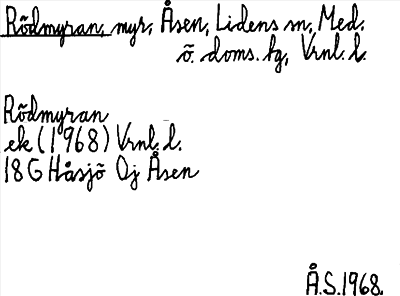 Rödmyran, myr, Åsen, Lidens sn, Med.
ö. doms. tg, Vrnl. l.
Rödmyran
ek (1968) Vrnl. l.
18G Håsjö 0j Åsen
Å.S. 1968.